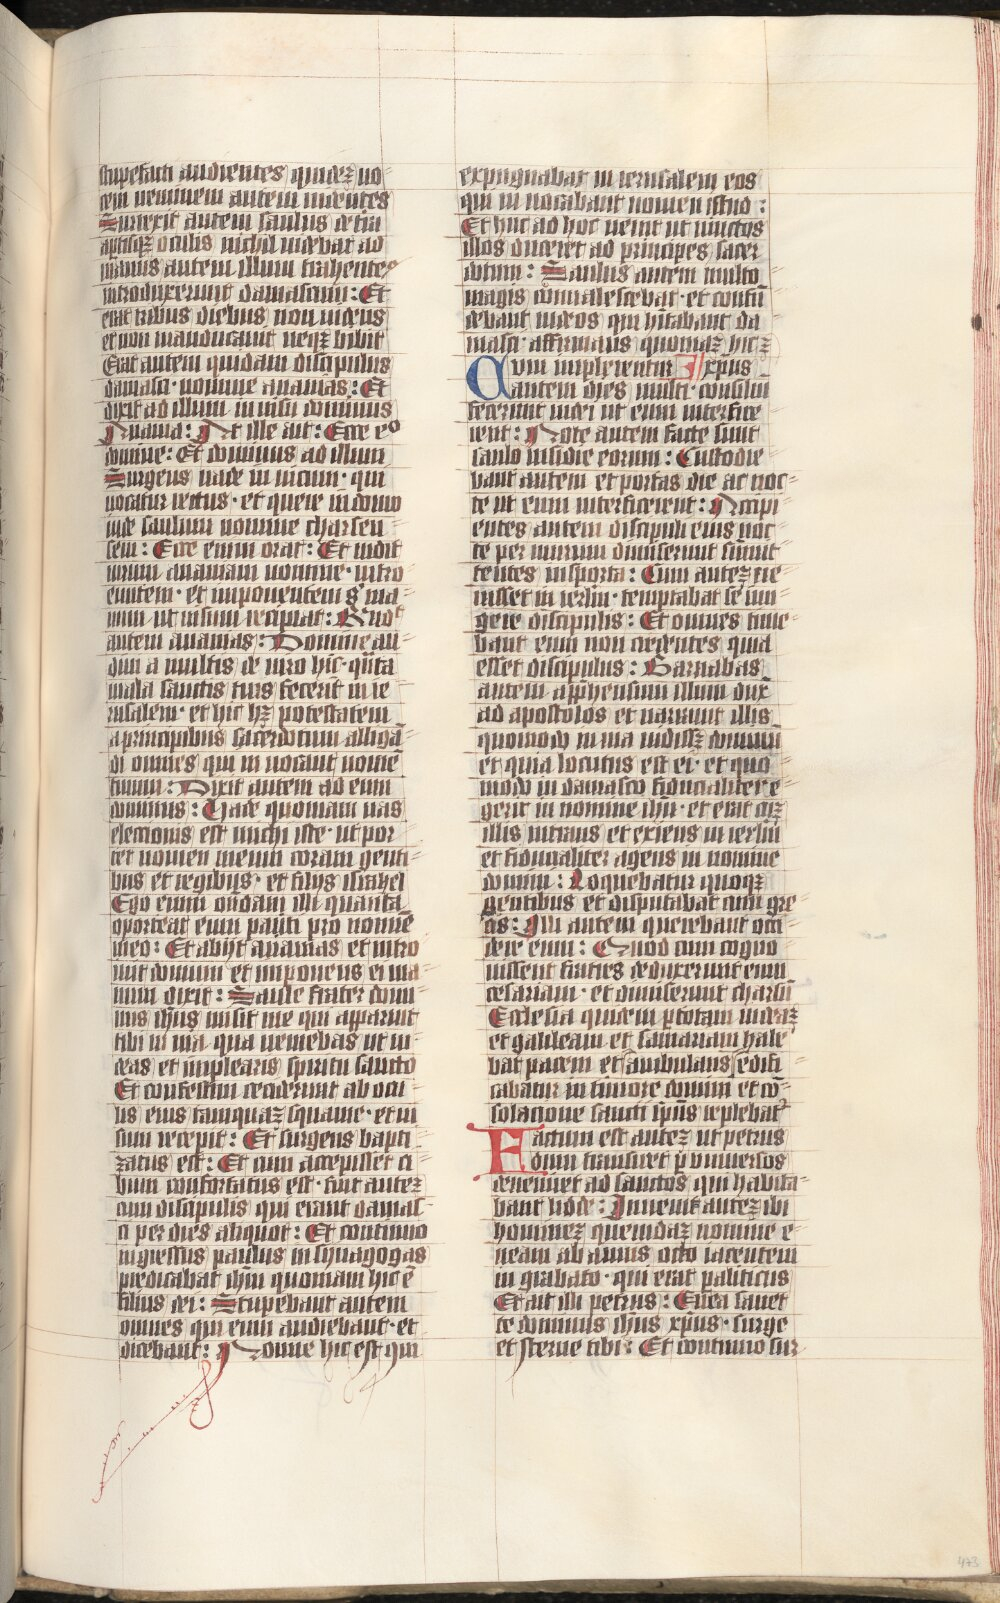 stupefacti audientes quidez uo
cem neminem autem uidentes
Surrexit autem saulus de tra
aptisqz oculis nichil uidebat ad
manus autem illum trahentes
introduxerunt damascum: Et
erat tribus diebus non uidens
et non manducauit neqz bibit
Erat autem quidam discipulus
damasci· nomine ananias: Et
dixit ad illum in uisu dominus
Anania: At ille ait: Ecce eº
domine: Et dominus ad illum
Surgens uade in uicum· qui
uocatur rectus· et quere in domo
iude saulum nomine tharsen
sem: Ecce enim orat: Et uidit
uirum ananiam nomine· intro
euntem· et imponentem s ma
num ut uisum recipiat: Rñdᵗ
autem ananias: Domine au
diui a multis de uiro hic· qñta
mala sanctis tuis fecerit in ie
rusalem· et hic hz potestatem
a principibus sacerdotum alligā
di omnes qui in uocant nomē
tuum: Dixit autem ad eum
dominus: Uade quoniam uas
electionis est michi iste· ut por
tet nomen meum coram genti
bus et regibus· et filijs israhel
Ego enim ondam illi quanta
oporteat eum pati pro nomē
meo: Et abijt ananias et intro
iuit domum et imponens ei ma
num dixit: Saule frater domi
nus ihus misit me qui apparuit
tibi in uia qua ueniebas ut ui
deas et implearis spiritu sancto
Et confestim ceciderunt ab ocu
lis eius tamquaz squame· et ui
sum recepit: Et surgens bapti
zatus est: Et cum accepisset ci
bum confortatus est· fuit autez
cum discipulis qui erant damas
ci per dies aliquot: Et continuo
ingressus paulus in synagogas
predicabat ihm quoniam hic ē
filius dei: Stupebant autem
omnes qui eum audiebant· et
dicebant: Nonne hic est qui
expugnabat in ierusalem eos
qui in uocabant nomen istud:
Et huc ad hoc uenit ut uinctos
illos duceret ad principes sacer
dotum: Saulus autem multo
magis conualescebat· et confū
debant iudeos qui hitabant da
masci· affirmans quoniaz hic ē
Cum implerentur xpus
autem dies multi· consiliū
fecerunt iudei ut eum interfice
rent: Note autem facte sunt
saulo insidie eorum: Custodie
bant autem et portas die ac noc
te ut eum interficerent: Accipi
entes autem discipuli eius noc
te per murum dimiserunt sūmit
tentes in sporta: Cum autez ue
nisset in ierlm· temptabat se iun
gere discipulis: Et omnes time
bant eum non credentes quia
esset discipulus: Barnabas
autem apphensum illum dux̄
ad apostolos et narrauit illis
quomodo in uia uidissz dominū
et quia locutus est ei· et quo
modo in damasco fiducialiter e
gerit in nomine ihu· et erat cuz
illis intrans et exiens in ierlm
et fiducialiter agens in nomine
domini: Loquebatur quoqz
gentibus et disputabat cum gre
cis: Illi autem querebant occi
dere eum: Quod cum cogno
uissent fratres deduxerunt eum
cesariam· et dimiserunt tharsū
Ecclesia quidem p totam iudeaz
et galileam et samariam habe
bat pacem et ambulans edifi
cabatur in timore domini et cō
solacione sancti spūs replebat᷑
Factum est autez ut petrus
dum transiret p uniuersos
deueniret ad sanctos qui habita
bant lidde: Inuenit autez ibi
hominez quemdaz nomine e
neam ab annis octo iacentem
in grabato· qui erat paliticus
Et ait illi petrus: Enea sanet
te dominus ihus xpus· surge
et sterne tibi: Et continuo sur
473